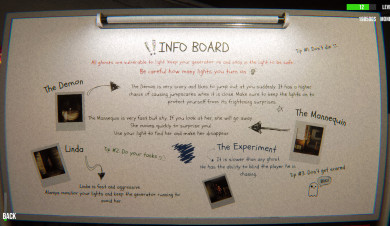 12
LEVE
INFO BOARD
Tip #1: Don't die
All ghosts are vulnerable to light keep your generator on and stay in the light to be safe.
Be careful how many lights you turn on
The Demon
The Demon is very scary and likes to jump out at you suddenly. It has a higher
chance of causing jumpscares when it is close. Make sure to keep the lights on to
protect yourself from its frightening surprises.
The Mannequin is very fast but shy. If you look at her, she will go away.
The moving quickly to surprise you!
Use your light to find her and make her disappear
The Mannequin
Linda
Tip #2: Do your tasks
The Experiment
It is slower than any ghost.
He has the ability to blind the player he is
chasing.
Tip #3: Don't get scared
Linda is fast and aggressive
Always monitor your lights and keep the generator running to
avoid her.
BACK